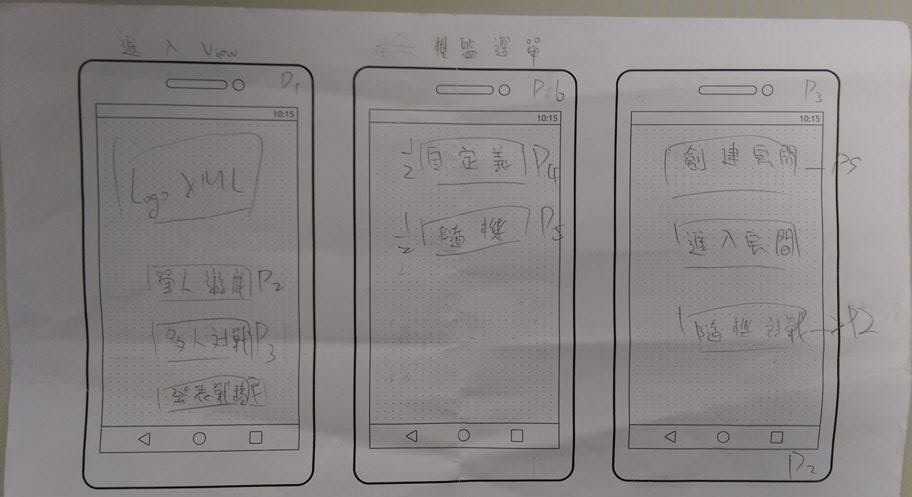 進入 View
P1
10:15
Logo XML
單人遊戲 P2
多人對戰 P3
發表戰績 F
選單
10:15
1/2 自定義 P4
1/2 隨機 P5
P3
10:15
創建房間 P5
進入房間
隨機對戰 → P2
P2